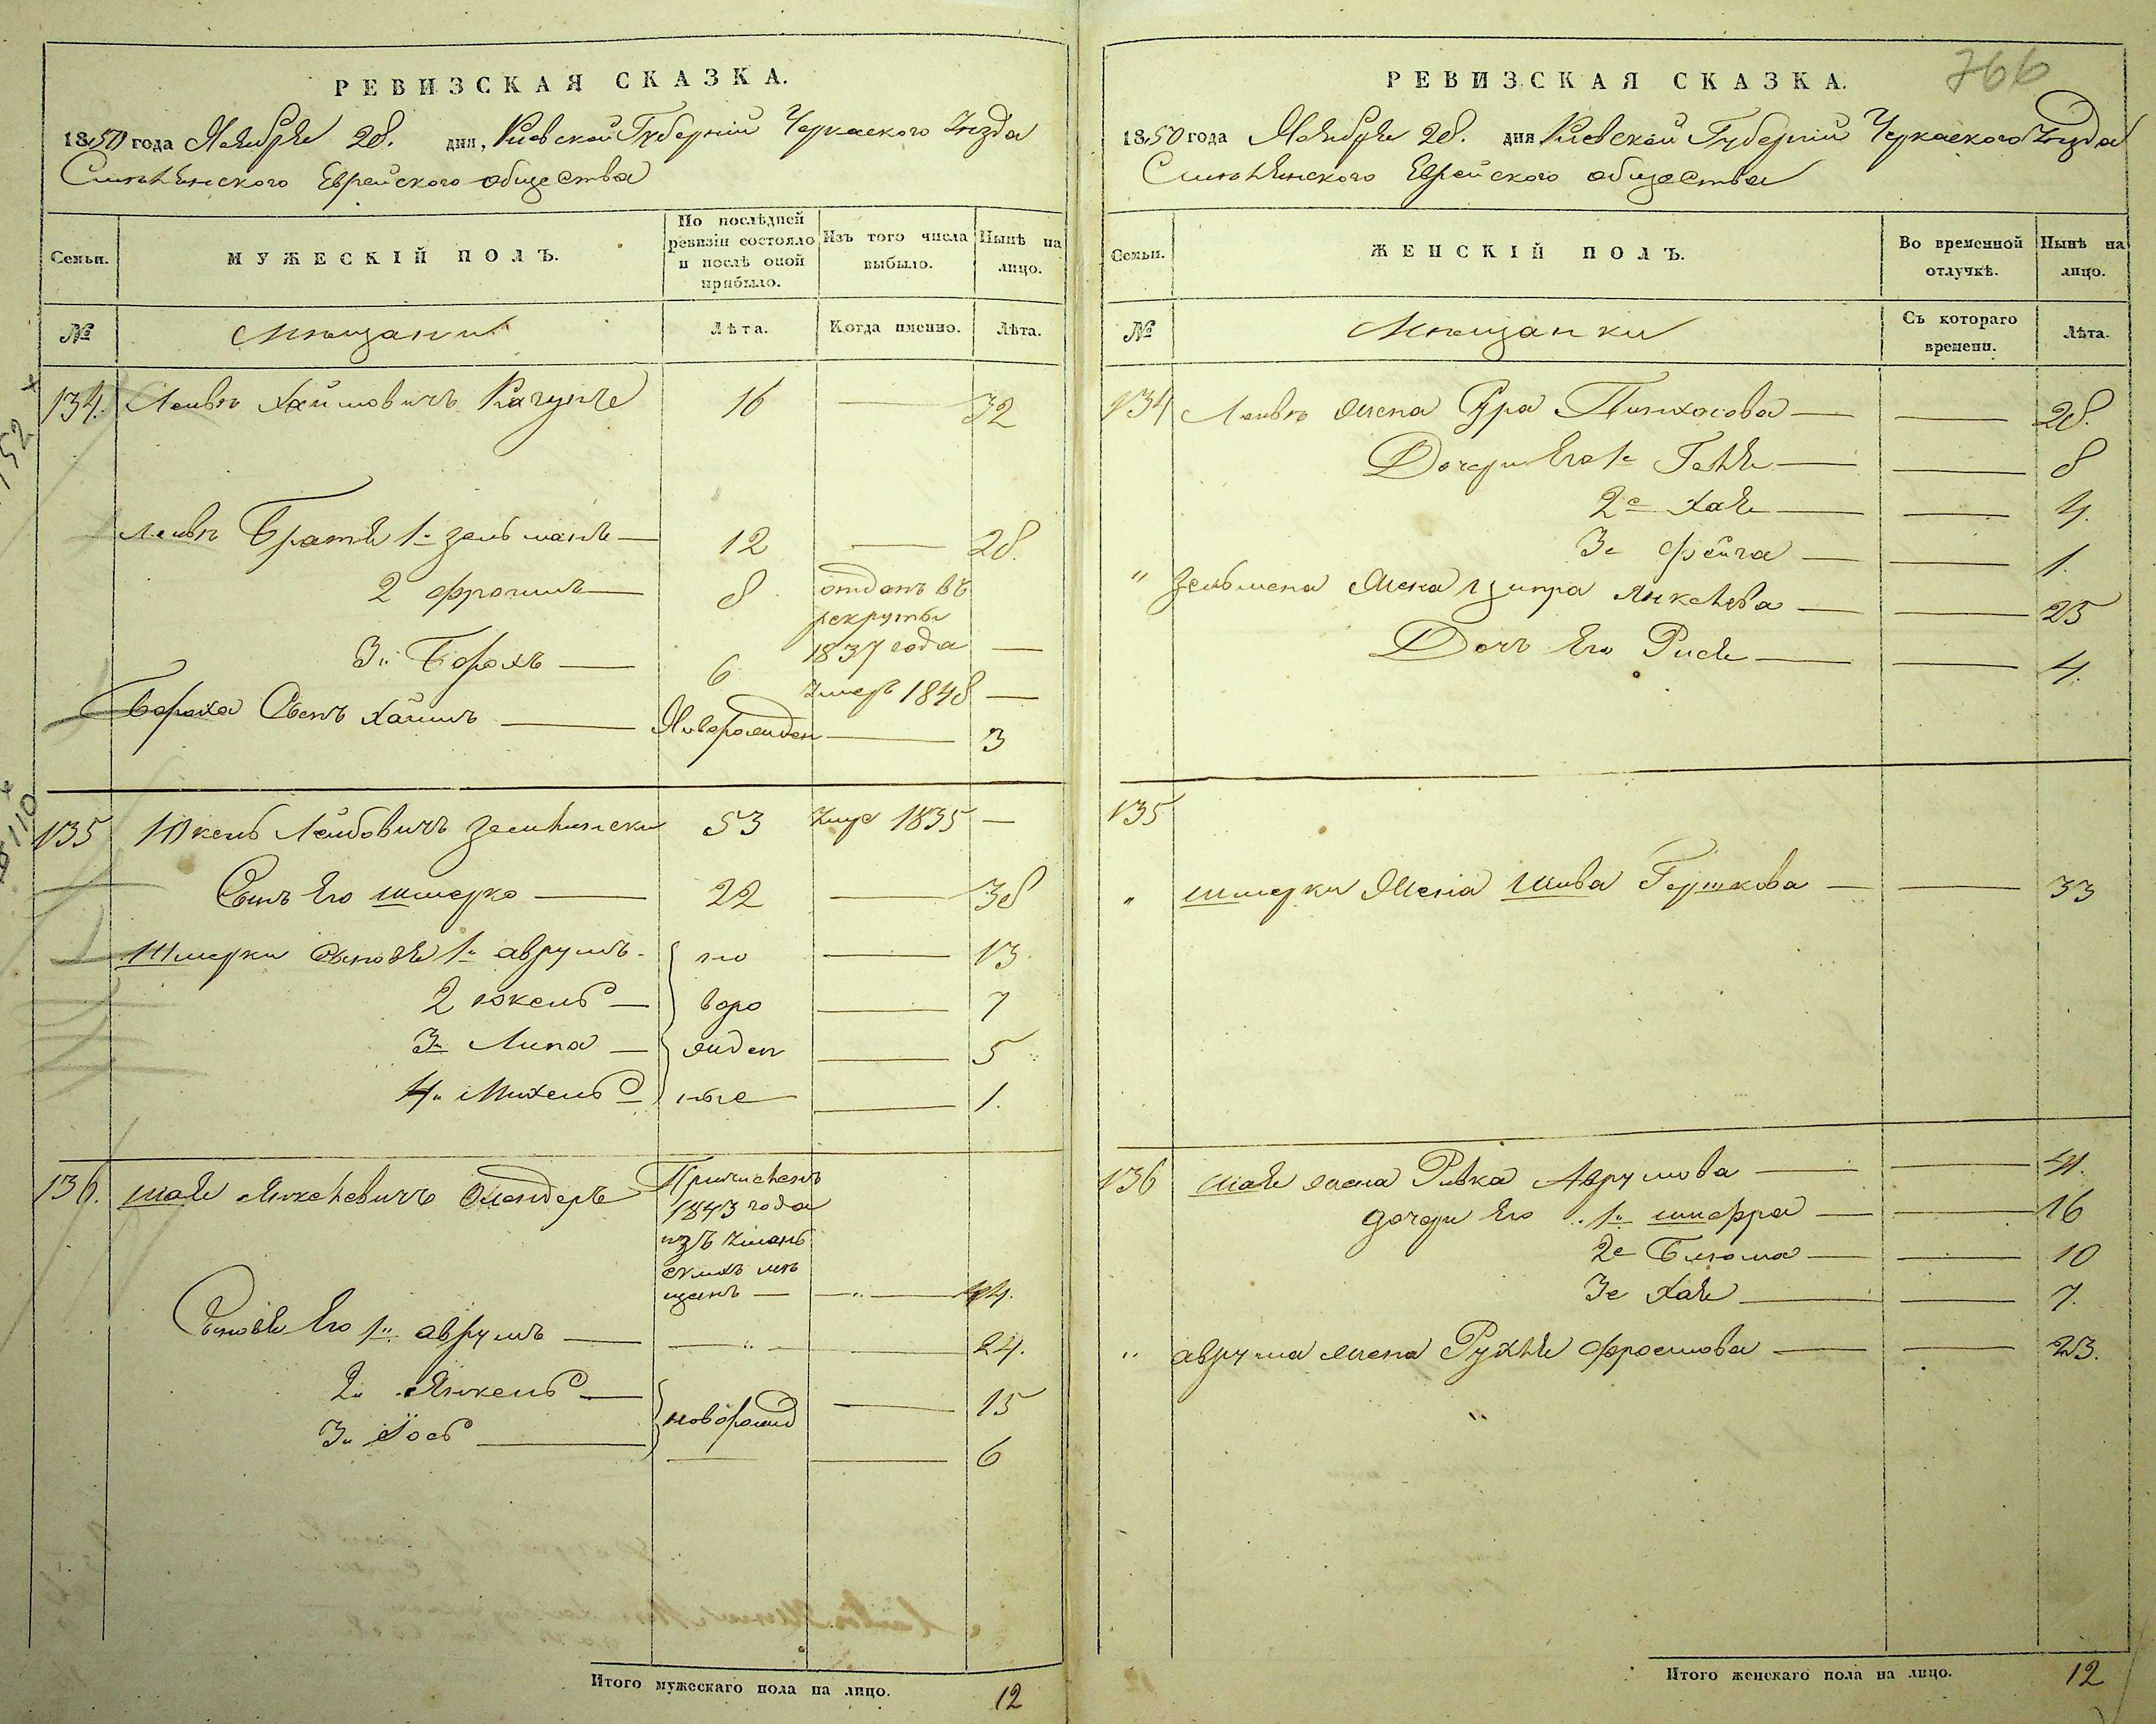 РЕВИЗСКАЯ СКАЗКА.
1850 года Ноября 28. дня, Киевской Губернии Черкаского Уезда
Смелянского Еврейского общества
Семьи.
МУЖЕСКІЙ ПОЛЪ.
По послѣдней ревизіи состояло и послѣ оной прибыло.
Изъ того числа выбыло.
Нынѣ на лицо.
№
Мещани
Лѣта.
Когда именно.
Лѣта.
134. Лейвъ Хаймовичъ 16 — 32
Лейвъ Братья 1й Зельманъ — 12 — 28.
2 Фроимъ — 8 отданъ въ рекруты 1837 года —
3й Борохъ — 6 Умеръ 1848 —
Бороха Сынъ Хаимъ — Новорожден — 3
135 Юкель Лейбовичъ 53 Умре 1835 —
Сынъ Его Шмерко — 22 — 38
Шмерки Сыновья 1й Аврумъ — но — 13
2 Юкель — воро — 7
3й Липа — жден — 5
4й Михель — ные — 1.
136. Шая Янкелевичъ Олендеръ Причисленъ
1843 года
изъ Уман
скихъ ме
щанъ — — " — 44.
Сыновья Его 1й Аврумъ — — " — — 24.
2й Янкель — новорожд — 15
3й Іось — — 6
Итого мужескаго пола на лицо. 12
766
РЕВИЗСКАЯ СКАЗКА.
1850 года Ноября 28. дня Киевской Губернии Черкаского Уезда
Смелянского Еврейского общества
Семьи.
ЖЕНСКІЙ ПОЛЪ.
Во временной отлучкѣ.
Нынѣ на лицо.
№
Мещанки
Съ котораго времени.
Лѣта.
134 Лейвъ жена Сура Пинхасова — — 28.
Дочери Его 1я Геня — — 8
2е Хая — — 4.
3е Фейга — — 1.
" Зельмана жена Ципра Янкелева — — 25
Дочь Его Рися — — 4.
135
" Шмерки Жена Шива Гершкова — — 33
136 Шая жена Ривка Аврумова — — 41.
дочери Его 1я Шифра — — 16
2е Блюма — — 10
3е Хая — — 7.
" Аврума жена Рухля Фроимова — — 23.
Итого женскаго пола на лицо. 12